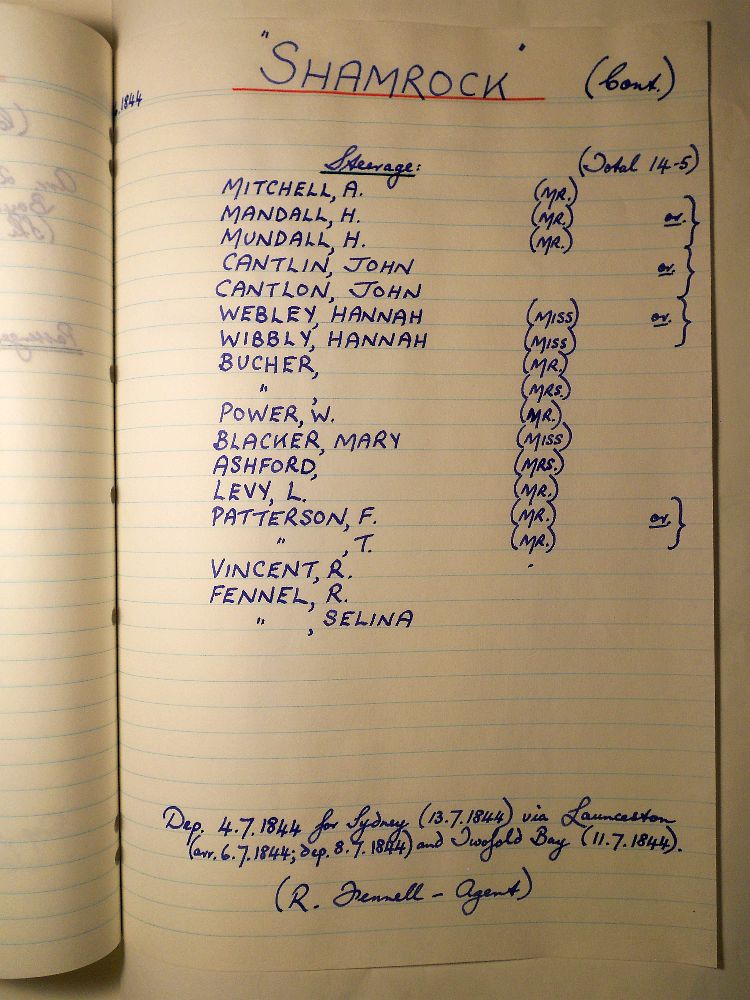 "SHAMROCK" (Cont.)
.1844
Steerage: (Total 14-5)
MITCHELL, A. (MR.)
MANDALL, H. (MR.) or. }
MUNDALL, H. (MR.)
CANTLIN, JOHN or. }
CANTLON, JOHN
WEBLEY, HANNAH (MISS) or. }
WIBBLY, HANNAH (MISS)
BUCHER, (MR.)
" , (MRS.)
POWER, W. (MR.)
BLACKER, MARY (MISS)
ASHFORD, (MRS.)
LEVY, L. (MR.)
PATTERSON, F. (MR.) or. }
" , T. (MR.)
VINCENT, R.
FENNEL, R.
" , SELINA
Dep. 4.7.1844 for Sydney (13.7.1844) via Launceston
(arr. 6.7.1844; dep. 8.7.1844) and Twofold Bay (11.7.1844).
(R. Fennell - Agent)